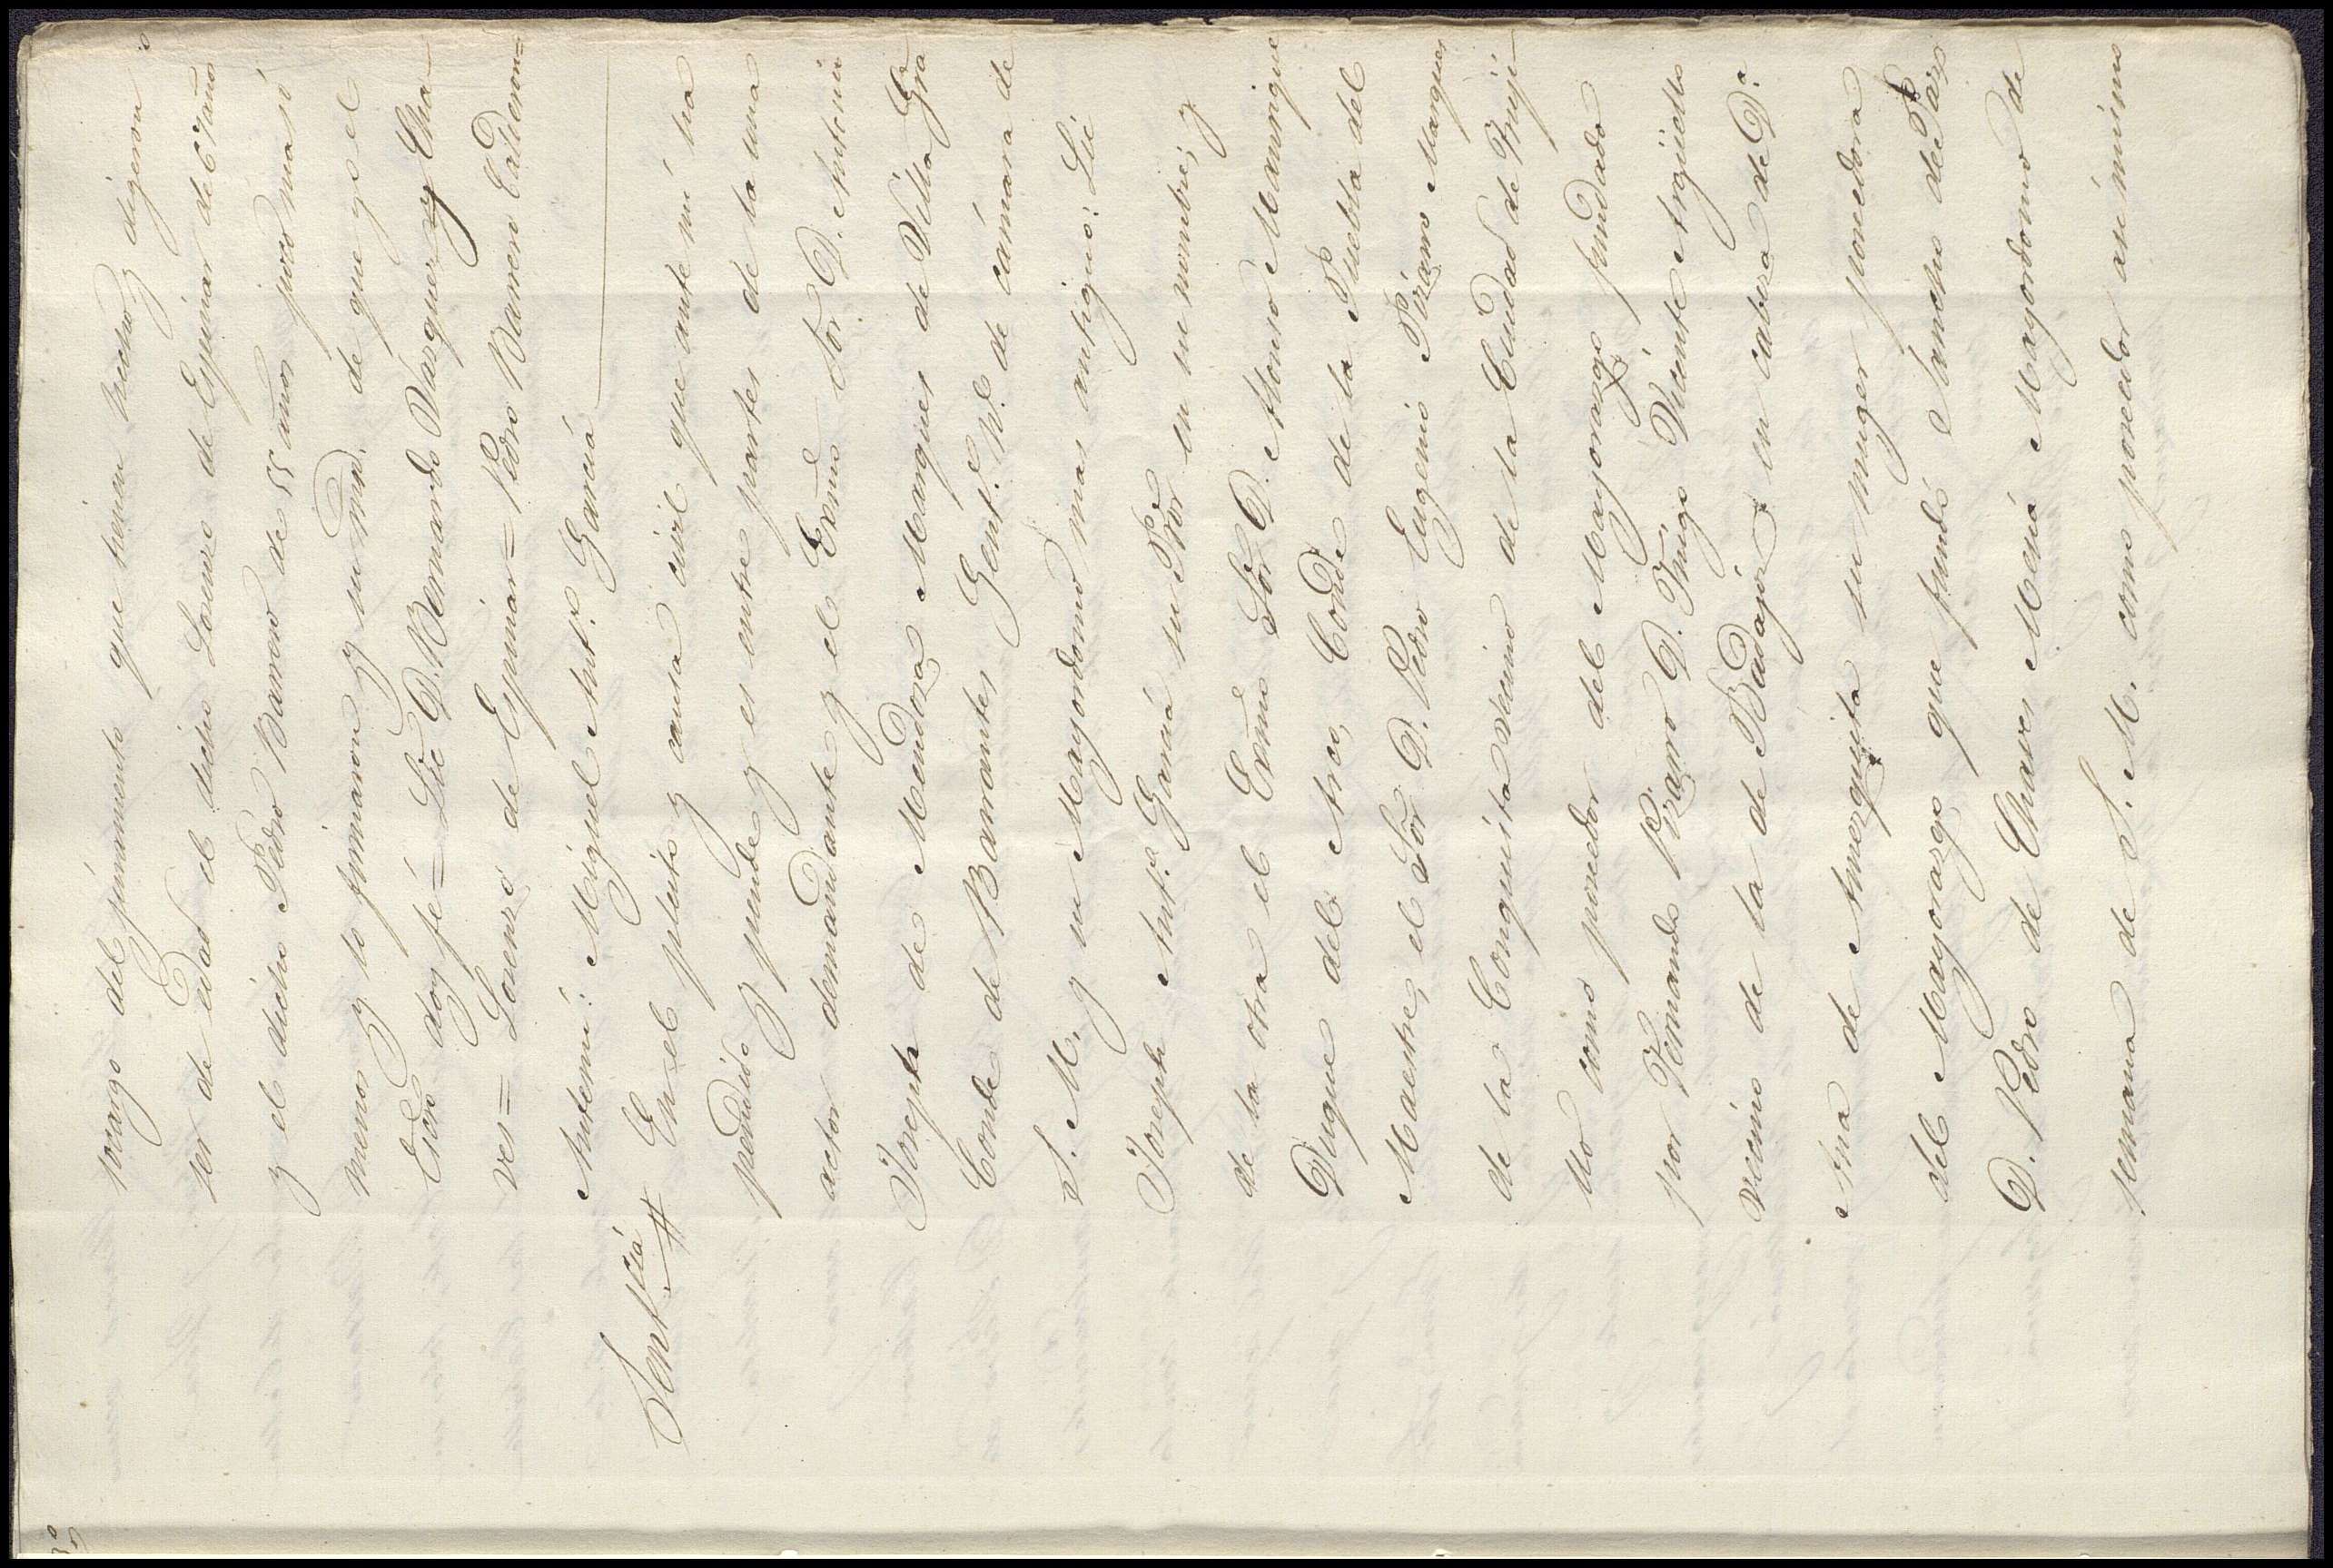 vorargo del juramento que tienen hecho, y digeron
ser de edad el dicho Lorenzo de Espinar de 67 años
y el dicho Pedro Barrero de 55 años poco mas ó
menos y lo firmaron y su mrd. de que yo el
Escno doy fé = Lic D. Bernardo Vazquez y Cha
ves = Lorenzo de Espinar = Pedro Barrero Calderon =
Antemi: Miguel Ant.º Garcia
Sent.cia # En el pleito y causa civil que ante mi ha
pendido y pende y es entre partes de la una
actor demandante y el Exmo Sor D. Antonio
Joseph de Mendoza Marques de Villa Gra
Conde de Barrantes Gent.l h.e de cámara de
S. M. y su Mayordomo mas antiguo: Lic
Joseph Ant.º Garcia su Pror en su nombre; y
de la otra el Exmo Sor D. Alonso Manrique
Duque del Arco, Conde de la Puebla del
Maestre, el Sor D. Pedro Eugenio Pizarro Marques
de la Conquista vecino de la Ciudad de Truji
llo como poseedor del Mayorazgo fundado
por Fernando Pizarro D. Iñigo Vicente Argüello
vecino de la de Badajoz en cabeza de D.ª
Ana de Amezquita su muger poseedora
del Mayorazgo que fundó Sancho de Paz
D. Pedro de Chaves Mesia Mayordomo de
semana de S. M. como poseedor asimismo